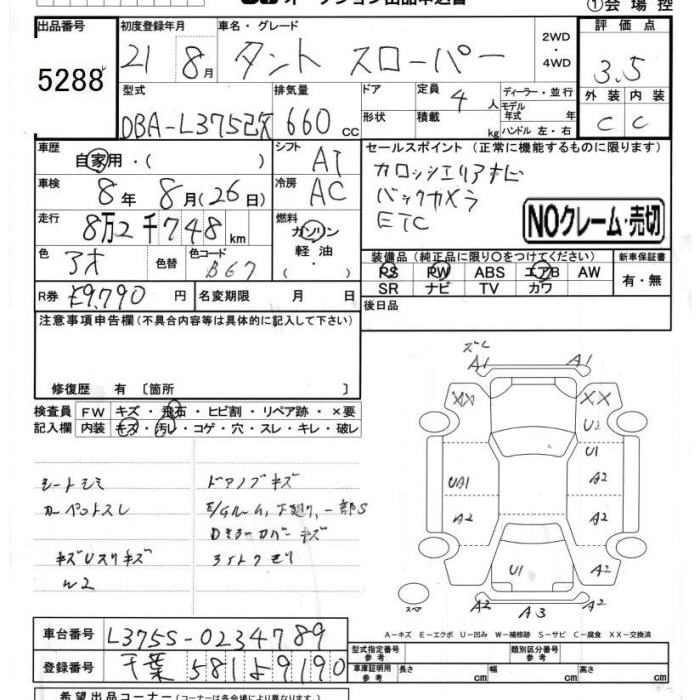 オークション出品申込書
①会場控
出品番号 初度登録年月 車名・グレード 2WD・4WD 評価点
5288 21 8月 タント スローパー 3.5
型式 排気量 ドア 定員 4人 ディーラー・並行 外装 内装
DBA-L375S改 660cc 形状 積載 kg モデル年式 年 ハンドル 左・右 C C
車歴 自家用・( ) シフト AT セールスポイント (正常に機能するものに限ります)
車検 8年 8月(26日) 冷房 AC カロッツェリアナビ
バックカメラ
走行 8万2千748km 燃料 ガソリン・軽油・( ) ETC
NOクレーム・売切
色 アオ 色替 色コード B67
装備品 (純正品に限り○をつけてください) 新車保証書
PS PW ABS エアB AW 有・無
SR ナビ TV カワ
R券 ¥9,790円 名変期限 月 日 後日品
注意事項申告欄 (不具合内容等は具体的に記入して下さい)
修復歴 有 〔箇所 〕
検査員記入欄 FW キズ・飛石・ヒビ割・リペア跡・×要
内装 キズ・汚れ・コゲ・穴・スレ・キレ・破レ
シートシミ ドアノブキズ
カーペットスレ E/Gルーム,下廻り,一部S
キズUスリキズ ライトクモリ
W2
ズレ
A1 A1
XX XX
U2
U1
UA1 A2
A2 A2
U1 A2
A2 A3 A2
スペア
A-キズ E-エクボ U-凹み W-補修跡 S-サビ C-腐食 XX-交換済
車台番号 L375S-0234789
登録番号 千葉 581 よ 9190
型式指定番号 参考 類別区分番号 参考
車庫証明用 参考 長さ cm 幅 cm 高さ cm
希望出品コーナー (コーナーは各会場により異なります。)